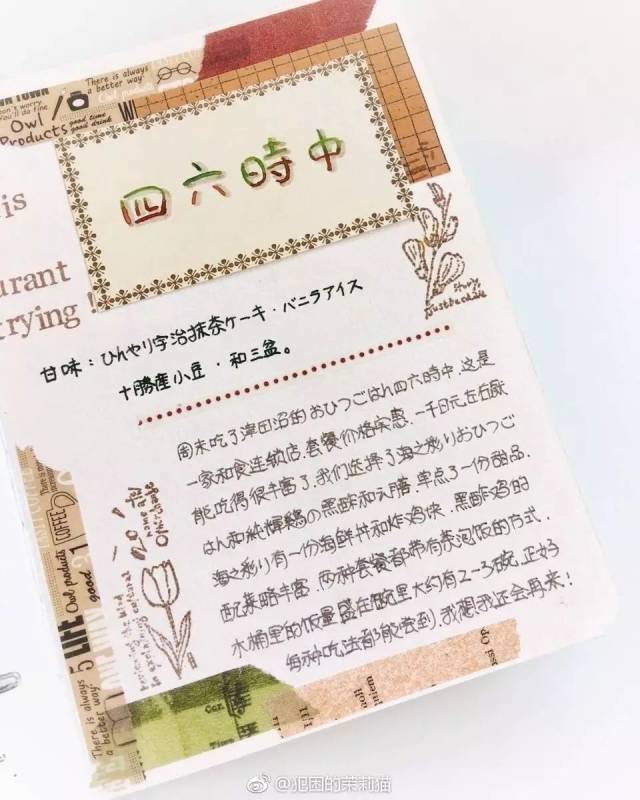 There is always
a better way
Owl
Products
good time
good drink
四六時中
is
urant
trying!
甘味：ひんやり宇治抹茶ケーキ・バニラアイス
十勝産小豆・和三盆。
周末吃了津田沼的おひつごはん四六時中,这是
一家和食连锁店.套餐价格实惠.一千日元左右就
能吃得很丰富了.我们选择了海之彩りおひつご
はん和純輝鶏の黒酢和え膳,单点了一份甜品.
海之彩り有一份海鲜丼和炸鸡块.黑酢鸡的
配菜略丰富.两种套餐都带有茶泡饭的方式.
木桶里的饭量盛在碗里大约有2-3碗.正好
每种吃法都能尝到,我想我还会再来！
COFFEE
Owl products
good
LIFE
There is always
a better way
@犯困的茉莉猫